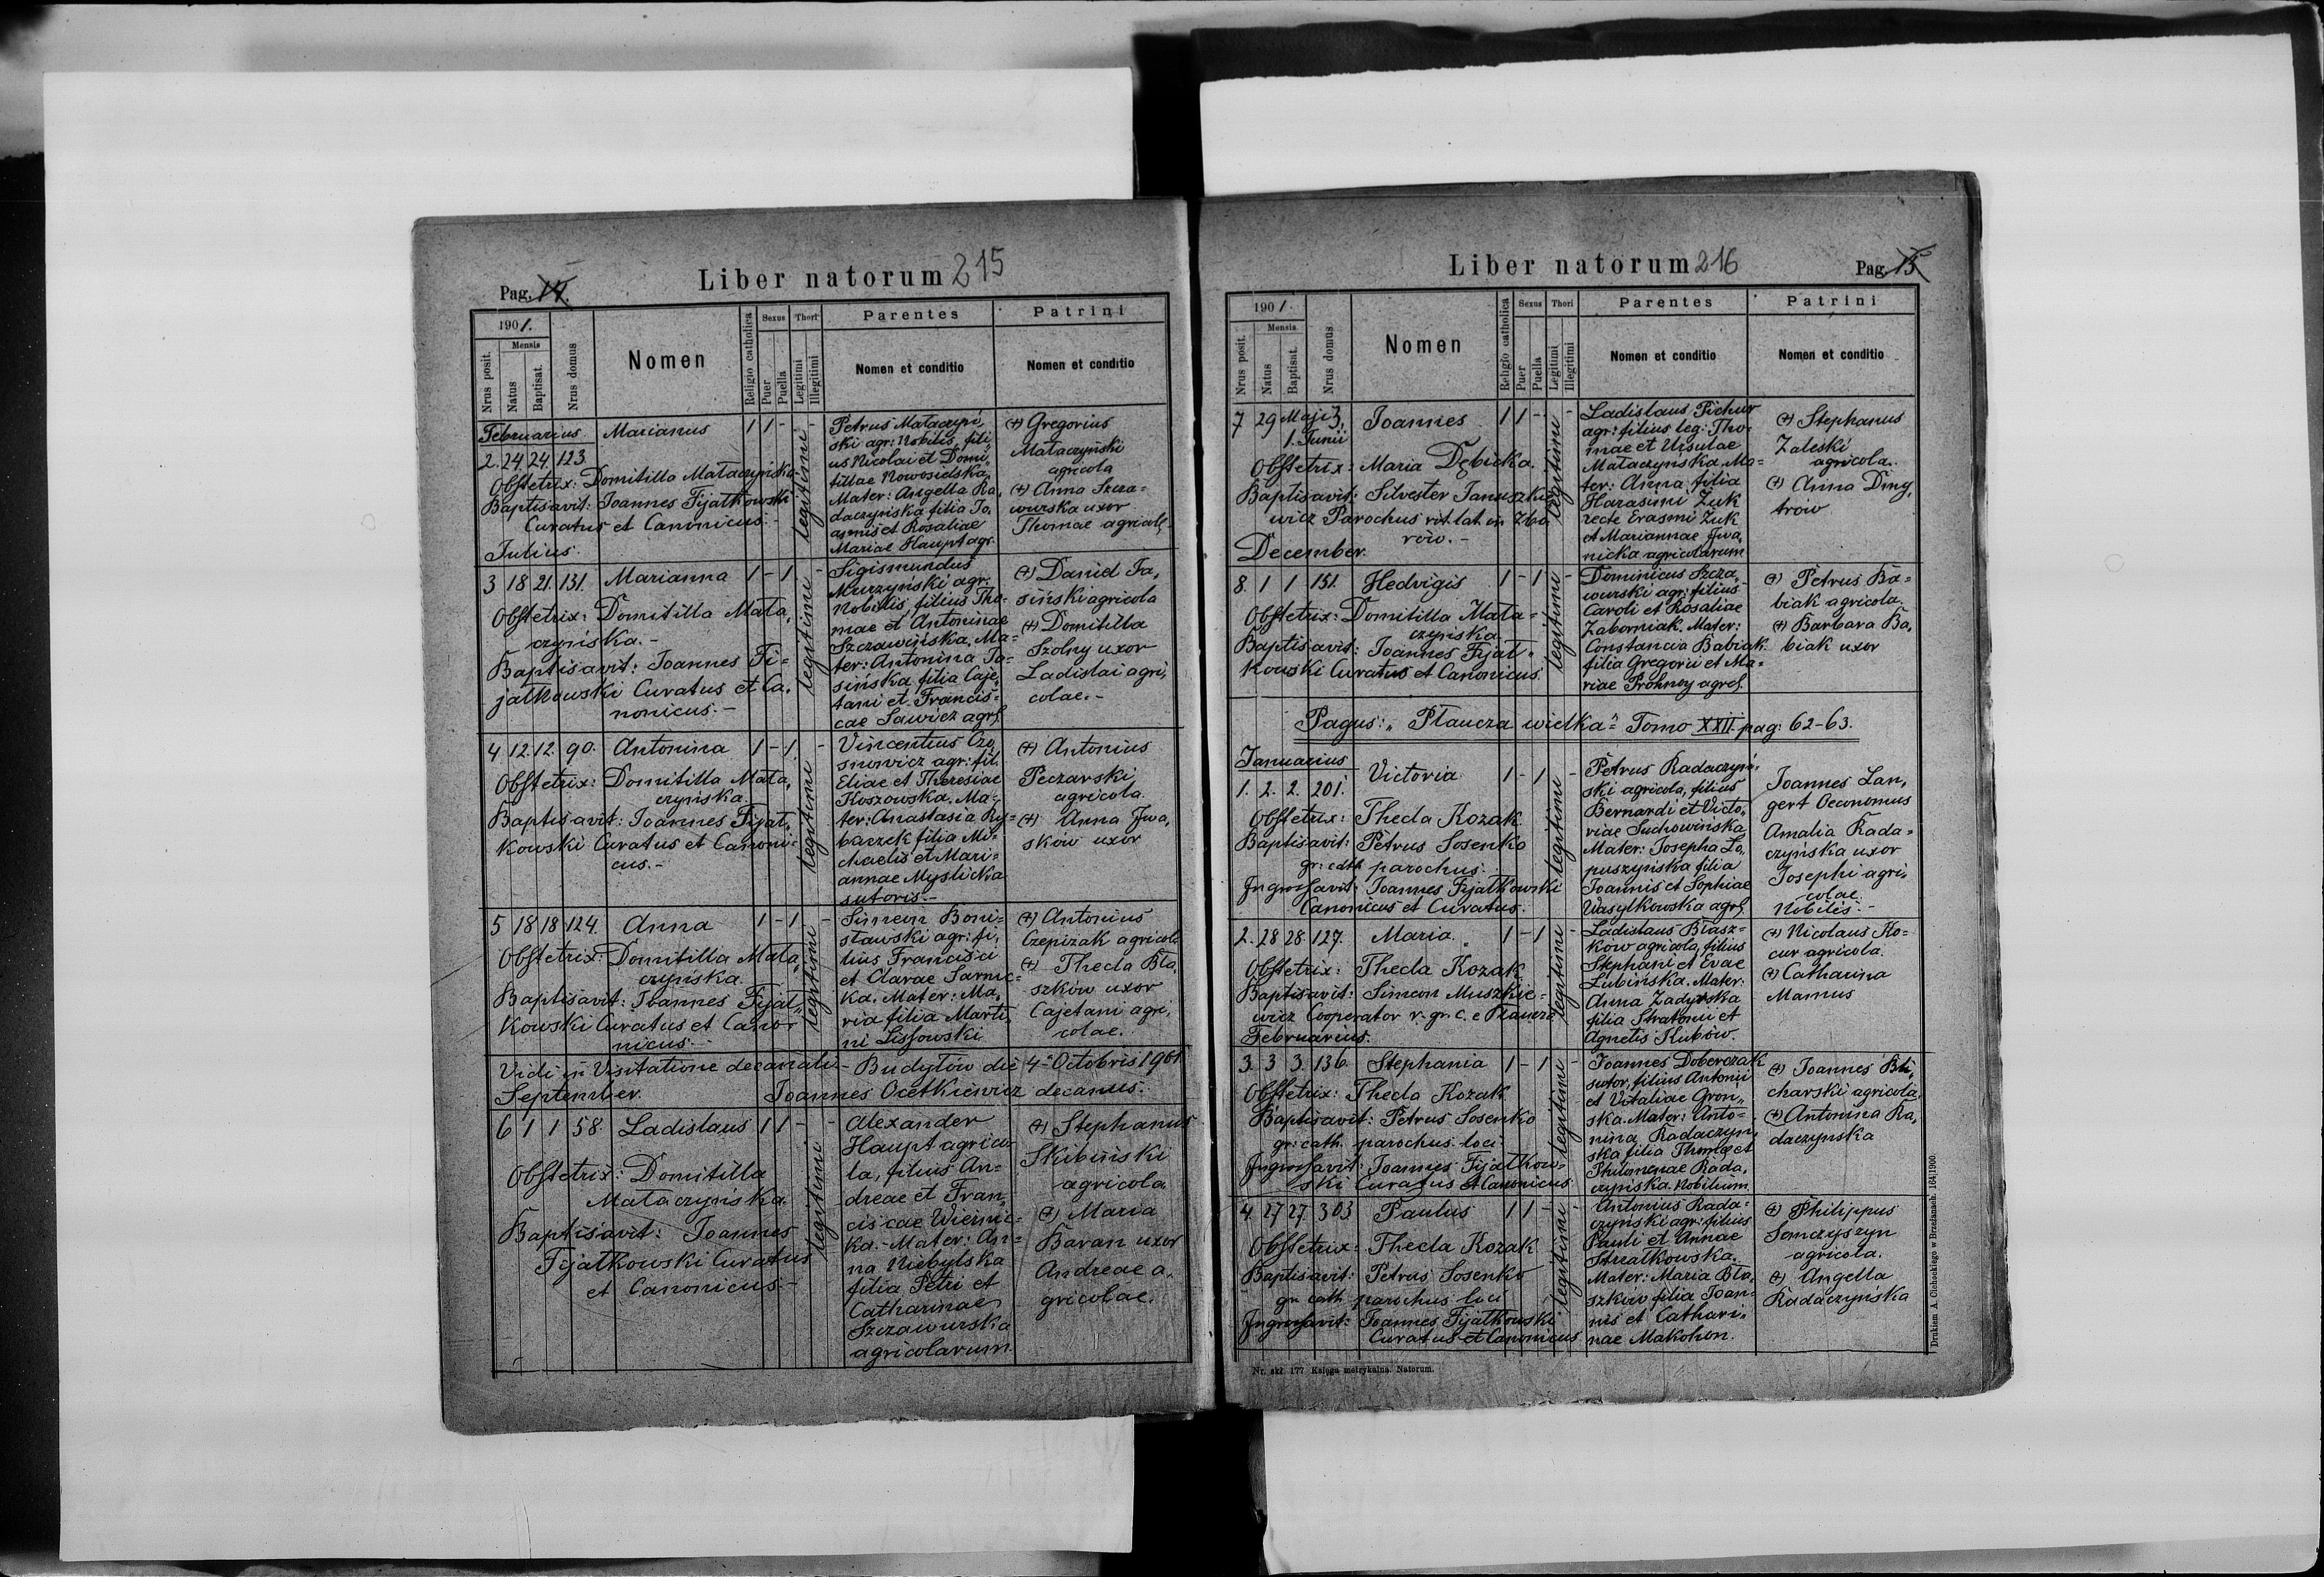 Pag. 14.
Liber natorum 215
1901.
Nrus posit.
Mensis
Natus
Baptisat.
Nrus domus
Nomen
Religio catholica
Sexus
Puer
Puella
Thori
Legitimi
Illegitimi
Parentes
Nomen et conditio
Patrini
Nomen et conditio
Februarius
2. 24. 24. 123.
Marianus 1 1 - -
Obstetrix: Domitilla Mataczyńska
Baptisavit: Joannes Fijałkowski
Curatus et Canonicus.-
legitimi
Petrus Mataczyń,
ski agr: Nobilis, fili,
us Nicolai et Domi,
tillae Nowosielska,
Mater: Angella Ra,
daczyńska filia Jo,
annis et Rosaliae
Mariae Haupt agr.
(+) Gregorius
Mataczyński
agricola
(+) Anna Szcza=
wurska uxor
Thomae agricol.
Julius.
3 18 21. 131. Marianna 1 - 1 -
Obstetrix: Domitilla Mata,
czyńska.-
Baptisavit: Joannes Fi=
jałkowski Curatus et Ca,
nonicus.-
legitimi
Sigismundus
Murzyński agr:
Nobilis, filius Tho=
mae et Antoninae
Szczawińska, Ma=
ter: Antonina Ja=
sińska filia Caje,
tani et Francis=
cae Sawicz agrl.
(+) Daniel Ja,
siński agricola
(+) Domitilla
Szolny uxor
Ladislai agri,
colae.-
4 12. 12. 90. Antonina 1 - 1 -
Obstetrix: Domitilla Mata,
czyńska.
Baptisavit: Joannes Fijał,
kowski Curatus et Canoni=
cus.-
legitimi
Vincentius Czo
snowicz agr: fil.
Eliae et Theresiae
Koszowska. Ma=
ter: Anastasia Ry=
baczek filia Mi=
chaelis et Mari=
annae Myslicka
sutoris.-
(+) Antonius
Peczarski
agricola.
(+) Anna Iwa,
sków uxor
5 18 18 124. Anna 1 - 1 -
Obstetrix: Domitilla Mata,
czyńska.
Baptisavit: Joannes Fijał,
kowski Curatus et Cano=
nicus.-
legitimi
Simeon Boni=
sławski agr: fi,
lius Francisci
et Clarae Sarnic=
ka. Mater: Ma,
ria filia Marti,
ni Lissowski
(+) Antonius
Czepizak agricola
(+) Thecla Bła,
szków uxor
Cajetani agri,
colae.
Vidi in Visitatione decanali - Budyłów die 4-" Octobris 1901
September. Joannes Ocetkiewicz decanus.
6 1 1 58. Ladislaus 1 1 - -
Obstetrix: Domitilla
Mataczyńska.
Baptisavit: Joannes
Fijałkowski Curatus
et Canonicus.-
legitimi
Alexander
Haupt agrico=
la, filius An=
dreae et Fran,
ciscae Wiernic=
ka.- Mater: An=
na Niebylska
filia Petri et
Catharinae
Szczawurska
agricolarum.
(+) Stephanus
Skibiński
agricola
(+) Maria
Baran uxor
Andreae a,
gricolae.
Liber natorum 216
Pag. 15
1901.
Nrus posit.
Mensis
Natus
Baptisat.
Nrus domus
Nomen
Religio catholica
Sexus
Puer
Puella
Thori
Legitimi
Illegitimi
Parentes
Nomen et conditio
Patrini
Nomen et conditio
7 29 Maji 3, Joannes 1 1 - -
1. Junii
Obstetrix: Maria Dębicka.
Baptisavit: Silvester Januszkie
wicz Parochus rit. lat. in Zbo
rów.-
legitimi
Ladislaus Pichur
agr: filius leg: Tho=
mae et Ursulae
Mataczyńska. Ma=
ter: Anna filia
Harasimi Żuk
recte Erasmi Żuk
et Mariannae Iwa,
nicka agricolarum
(+) Stephanus
Zaleski
agricola.
(+) Anna Dmy,
trow
December.
8. 1 1 151. Hedvigis 1 - 1 -
Obstetrix: Domitilla Mata=
czyńska.
Baptisavit: Joannes Fijał=
kowski Curatus et Canonicus.
legitimi
Dominicus Szcza,
wurski agr: filius
Caroli et Rosaliae
Zaborniak. Mater:
Constancia Babiak
filia Gregorii et Ma=
riae Prohnoy agrcl.
(+) Petrus Ba=
biak agricola.
(+) Barbara Ba,
biak uxor
Pagus: „Płaucza wielka" Tomo XXII. pag: 62-63.
Januarius
1. 2. 2. 201. Victoria 1 - 1 -
Obstetrix: Thecla Kozak.
Baptisavit: Petrus Sosenko
gr: cath. parochus.
Ingrossavit: Joannes Fijałkowski
Canonicus et Curatus.
legitimi
Petrus Radaczyń,
ski agricola, filius
Bernardi et Victo,
riae Suchowińska
Mater: Josepha Ło,
puszyńska filia
Joannis et Sophiae
Wasylkowska agrl.
Joannes Lan,
gert Oeconomus
Amalia Rada=
czyńska uxor
Josephi agri,
colae.
Nobilis.-
2. 28 28. 127. Maria 1 - 1 -
Obstetrix: Thecla Kozak
Baptisavit: Simeon Muszkie=
wicz Cooperator r. gr. c. e Płaucza
legitimi
Ladislaus Błasz=
ków agricola, filius
Stephani et Evae
Lubińska. Mater:
Anna Zadyrska
filia Stratonii et
Agnetis Kubów.
(+) Nicolaus Ko=
cur agricola.
(+) Catharina
Mamus
Februarius.
3. 3 3. 136. Stephania 1 - 1 -
Obstetrix: Thecla Kozak
Baptisavit: Petrus Sosenko
gr: cath. parochus loci
Ingrossavit: Joannes Fijałkow=
ski Curatus et Canonicus.
legitimi
Joannes Doberczak
sutor, filius Antonii
et Vitaliae Gron,
ska. Mater: Anto=
nina Radaczyń,
ska filia Thomae et
Philomenae Rada,
czyńska. Nobilium.
(+) Joannes
charski agricola,
(+) Antonina Ra,
daczyńska
4 27 27. 303 Paulus 1 1 - -
Obstetrix: Thecla Kozak
Baptisavit: Petrus Sosenko
gr. cath. parochus loci
Ingrossavit: Joannes Fijałkowski
Curatus et Canonicus
legitimi
Antonius Rada=
czyński agr: filius
Pauli et Annae
Strzałkowska.
Mater: Maria Bła,
szków filia Joan=
nis et Cathari,
nae Makohon.
(+) Philippus
Semczyszyn
agricola.
(+) Angella
Radaczyńska
Nr. skł. 177 Księga metrykalna. Natorum.
Drukiem A. Cichockiego w Brzeżanach. 164|1900.